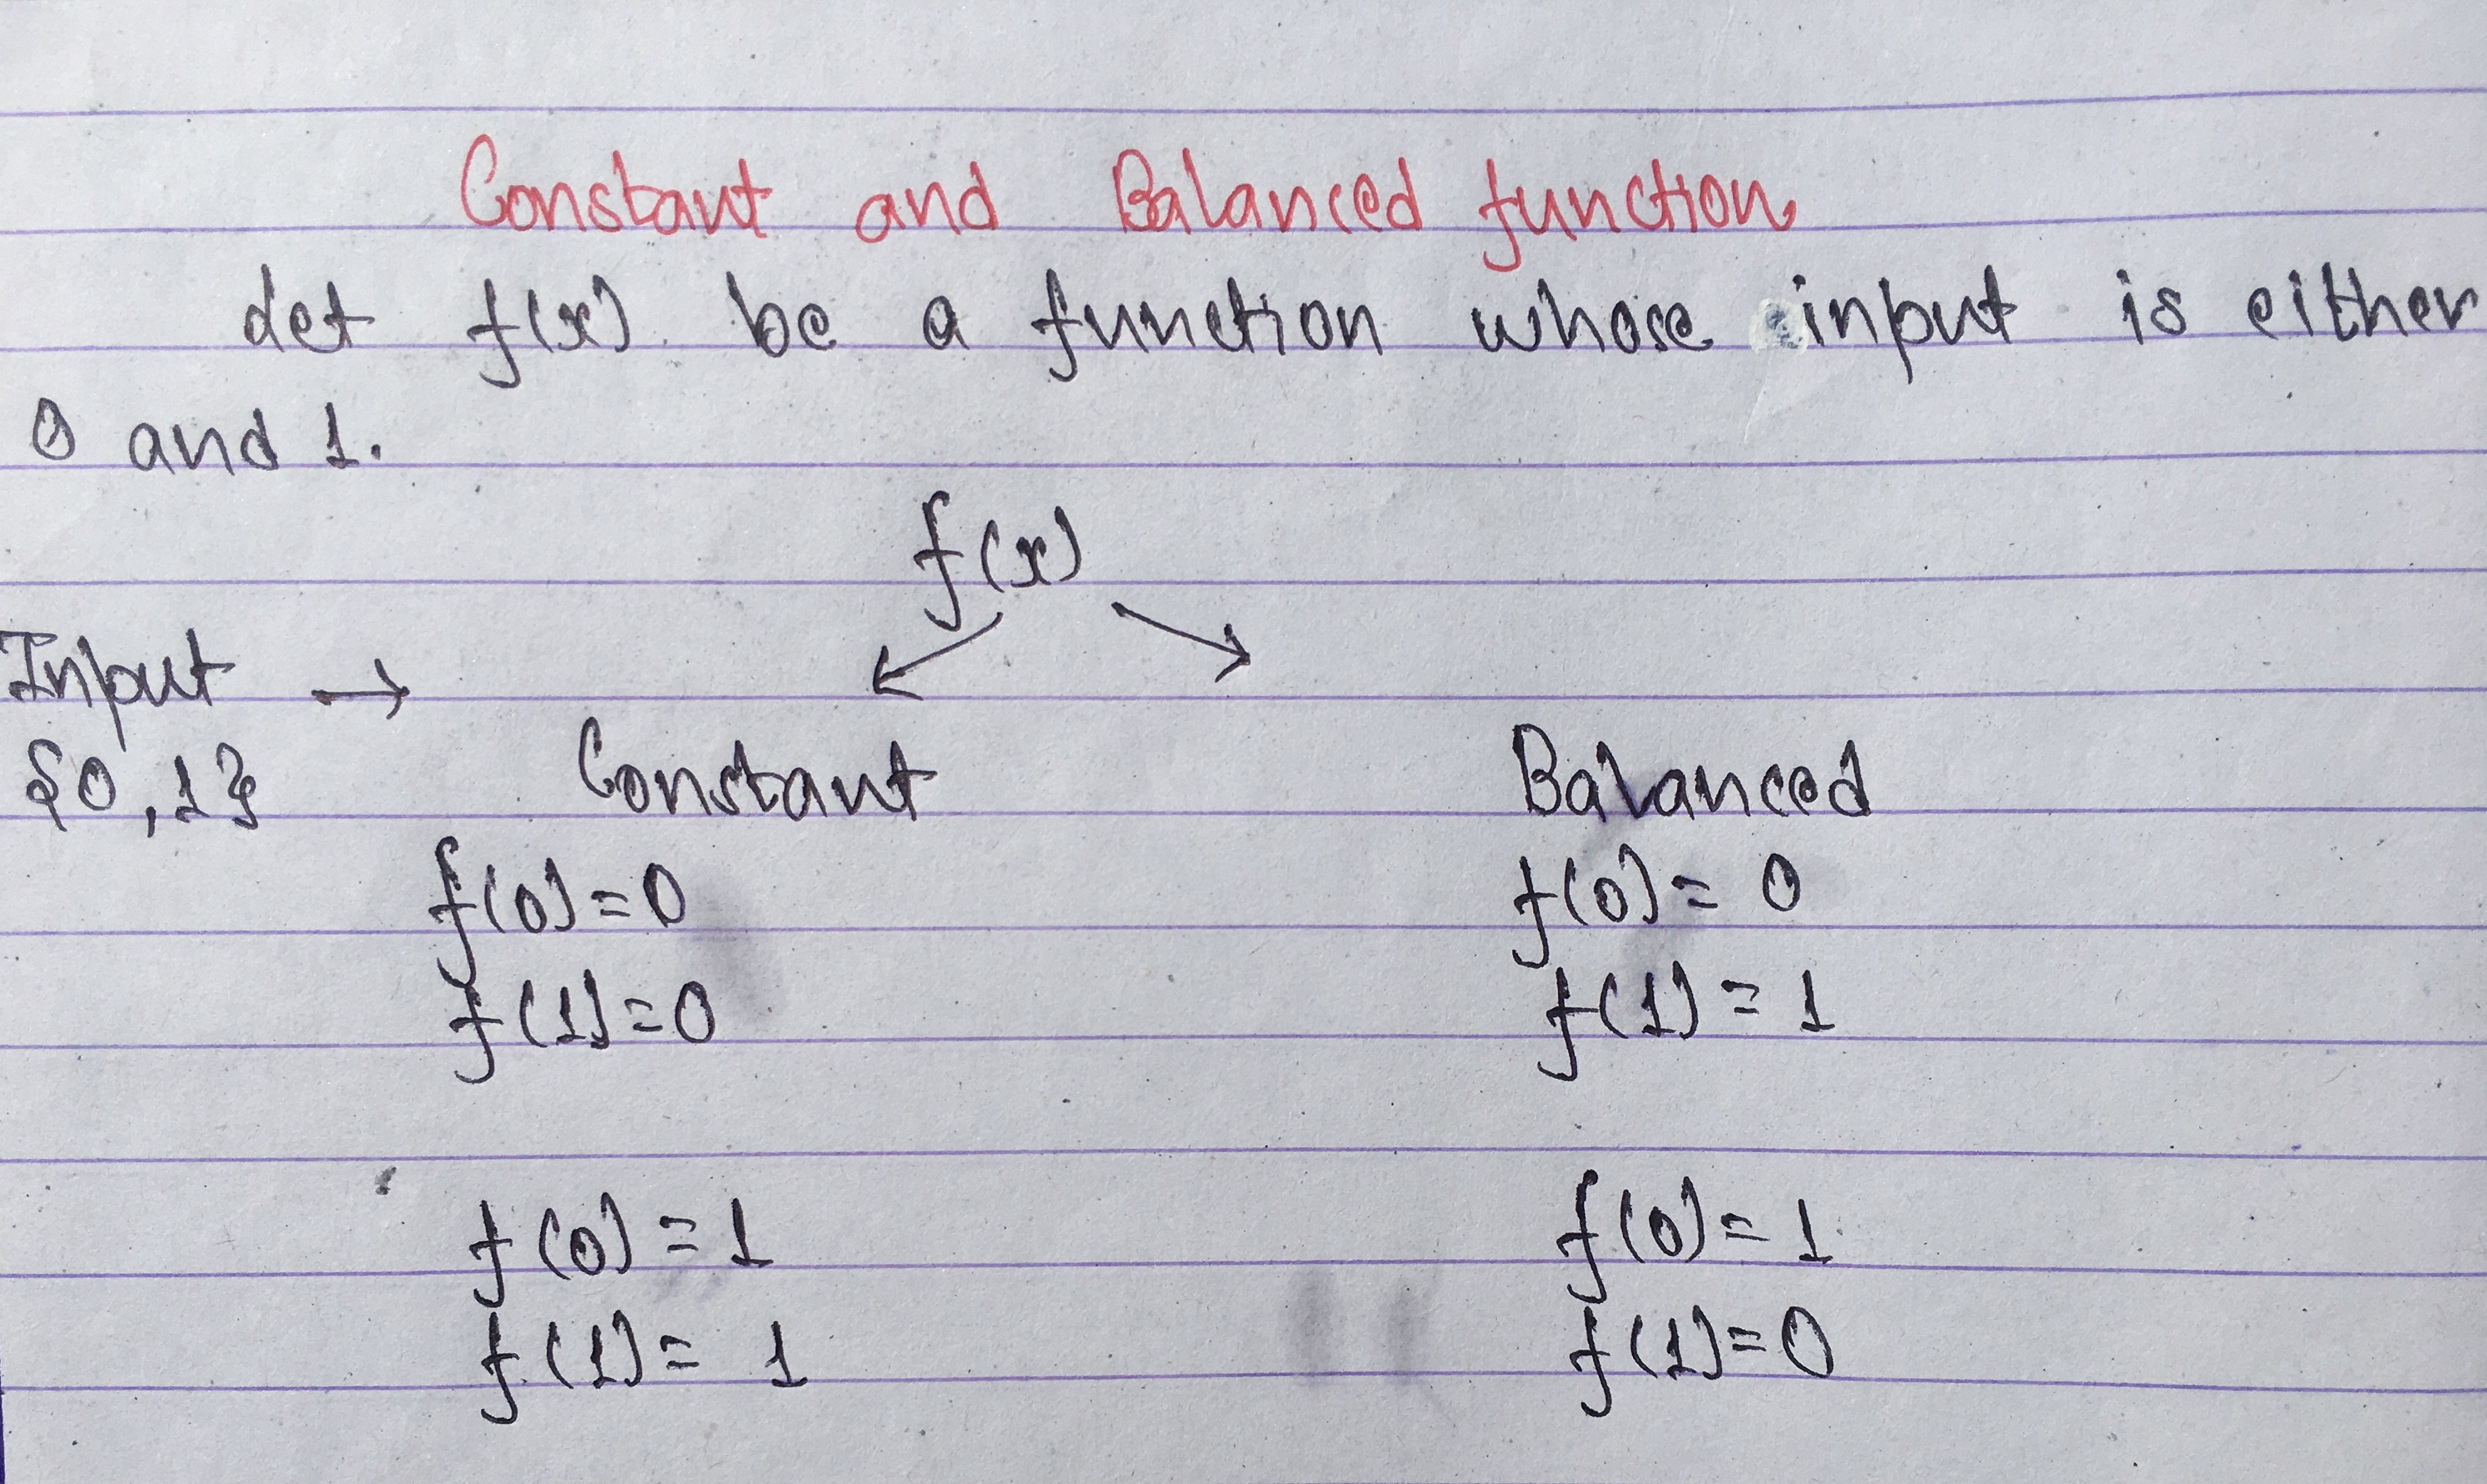 Constant and Balanced function
Let f(x) be a function whose input is either
0 and 1.
f(x)
Input →
{0,1} Constant Balanced
f(0)=0 f(0)= 0
f(1)=0 f(1) = 1
f(0) = 1 f(0)= 1
f(1)= 1 f(1)=0